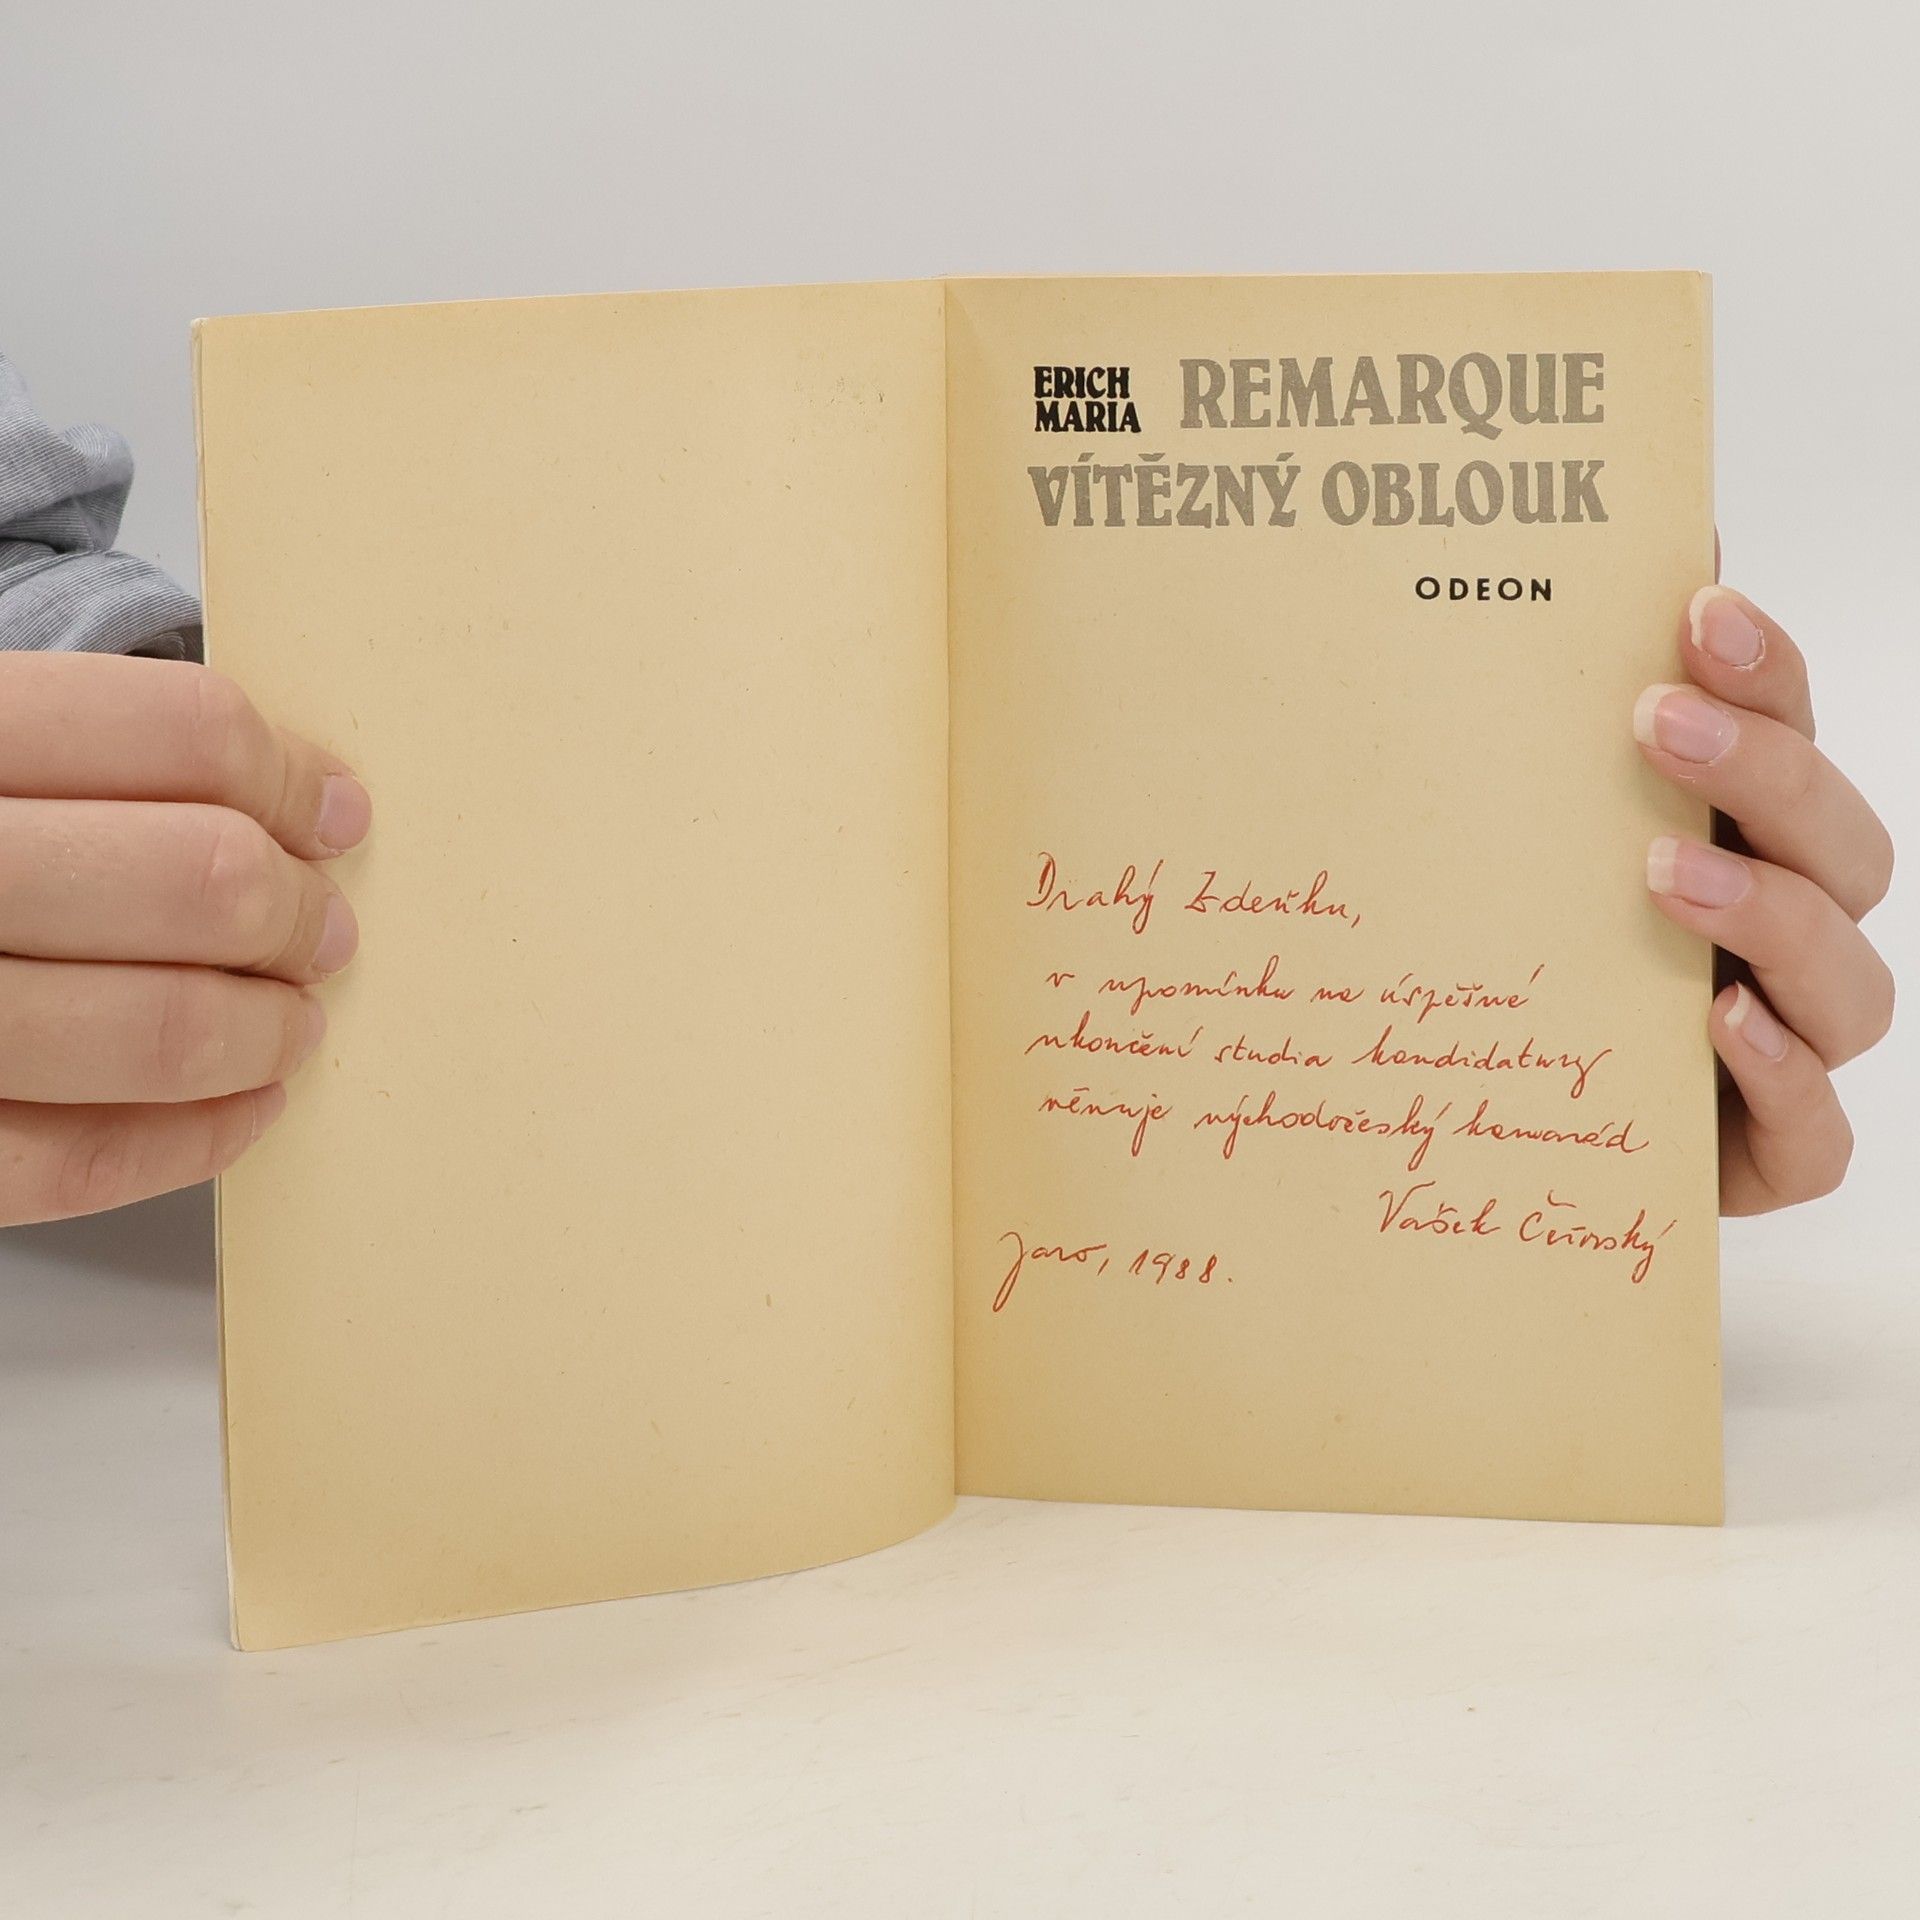 ERICH MARIA REMARQUE
VÍTĚZNÝ OBLOUK
ODEON
Drahý Zdeňku,
v upomínku na úspěšné
ukončení studia kandidatury
věnuje východočeský kamarád
Vašek
Jaro, 1988.